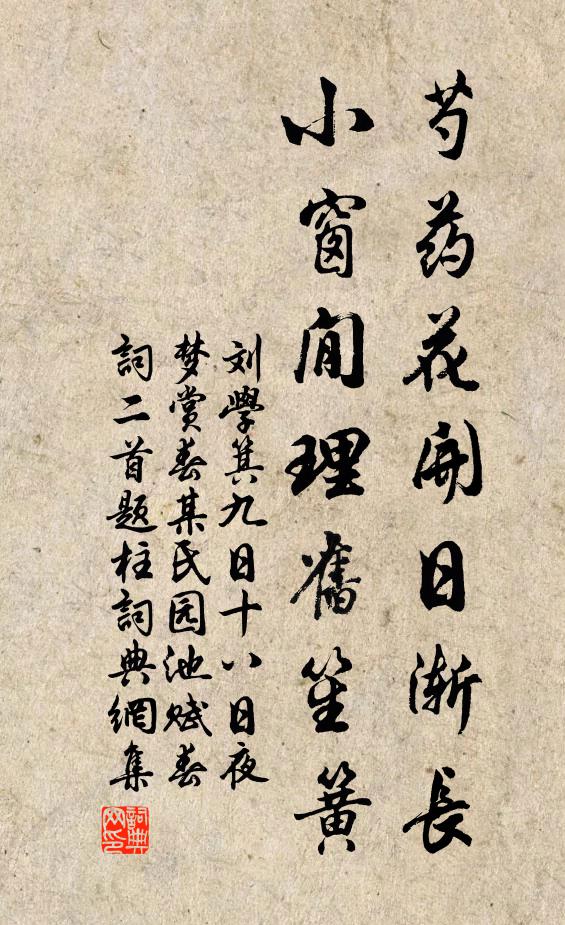 芍药花開日漸長
小窗閒理舊笙簧
刘學箕九日十八日夜
梦赏春某氏园池赋春
詞二首题柱詞典網集
詞典
网印